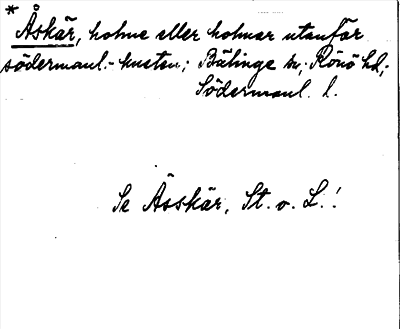 * Åskär, holme eller holmar utanför
södermanl.-kusten; Bälinge sn, Rönö hd,
Södermanl. l.
Se Åsskär, St. o. L.!